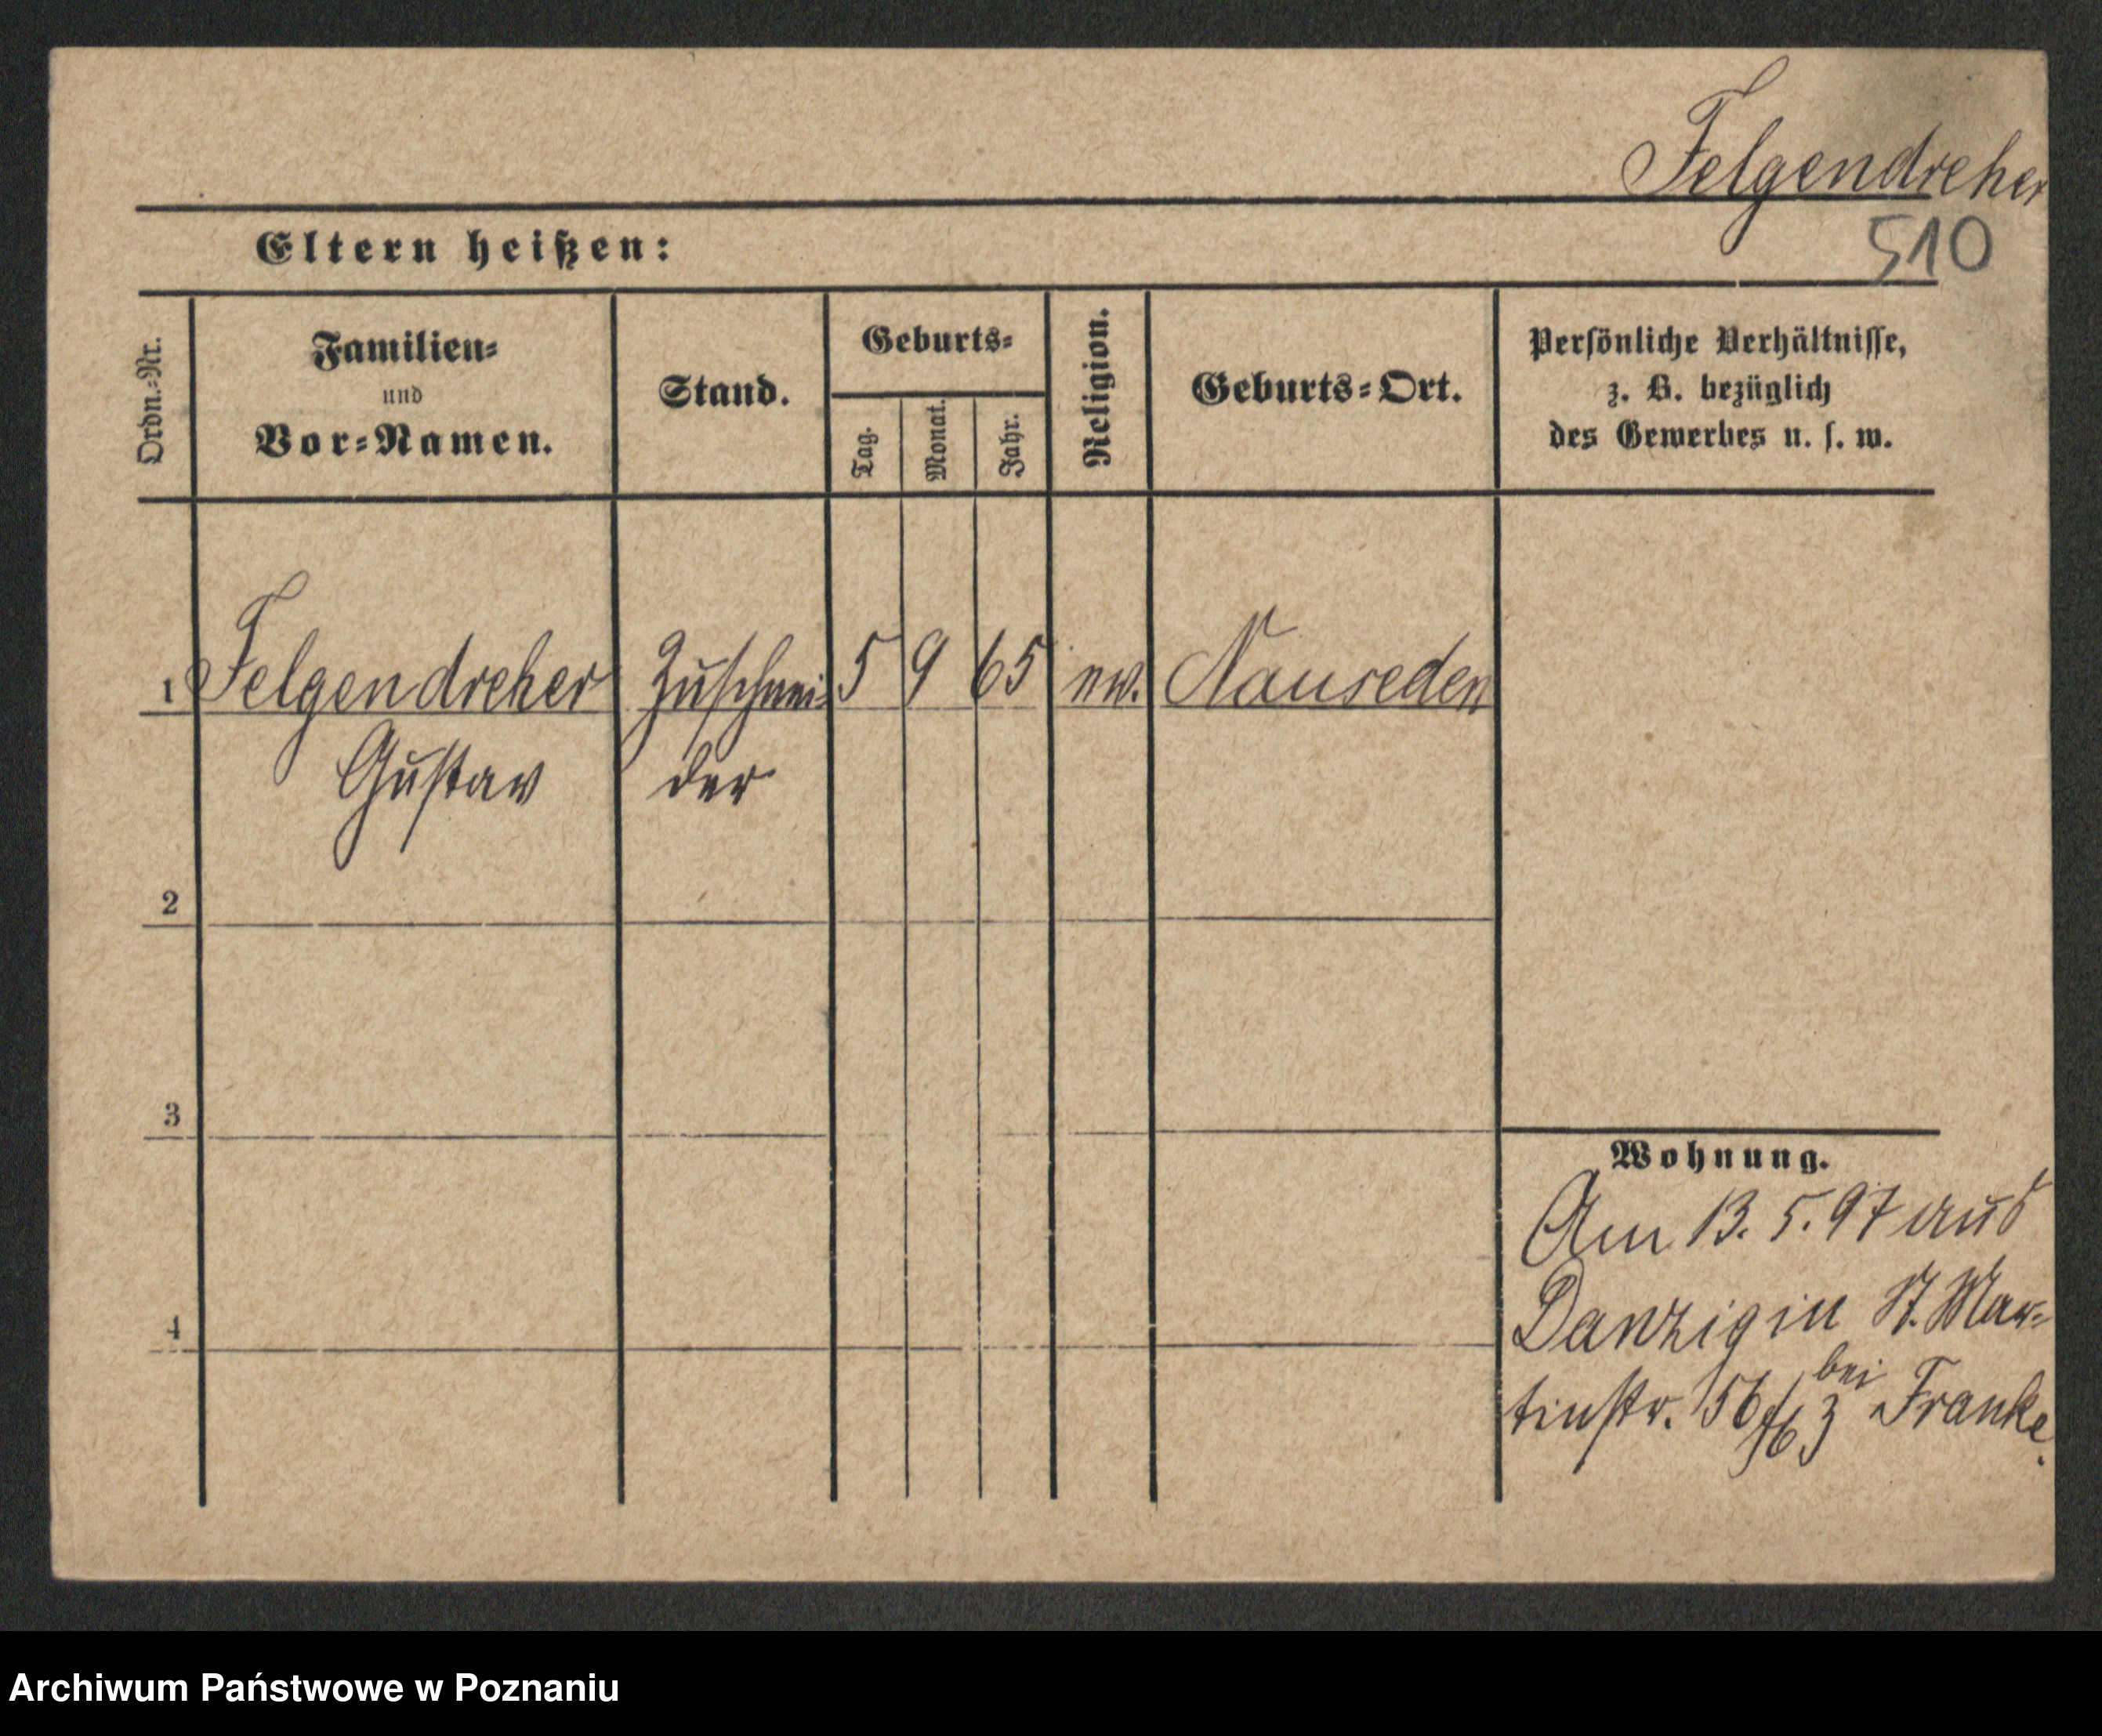 Felgendreher
510
Eltern heißen:
Ordn.=Nr.
Familien=
und
Vor=Namen.
Stand.
Geburts=
Tag.
Monat.
Jahr.
Religion.
Geburts=Ort.
Persönliche Verhältnisse,
z. B. bezüglich
des Gewerbes u. s. w.
1 Felgendreher Zuschnei= 5 9 65 ev. Nauseden
Gustav der
2
3
4
Wohnung.
Am 13. 5. 97 aus
Danzig in St. Mar=
bei
tinstr. 56 Franke.
Archiwum Państwowe w Poznaniu